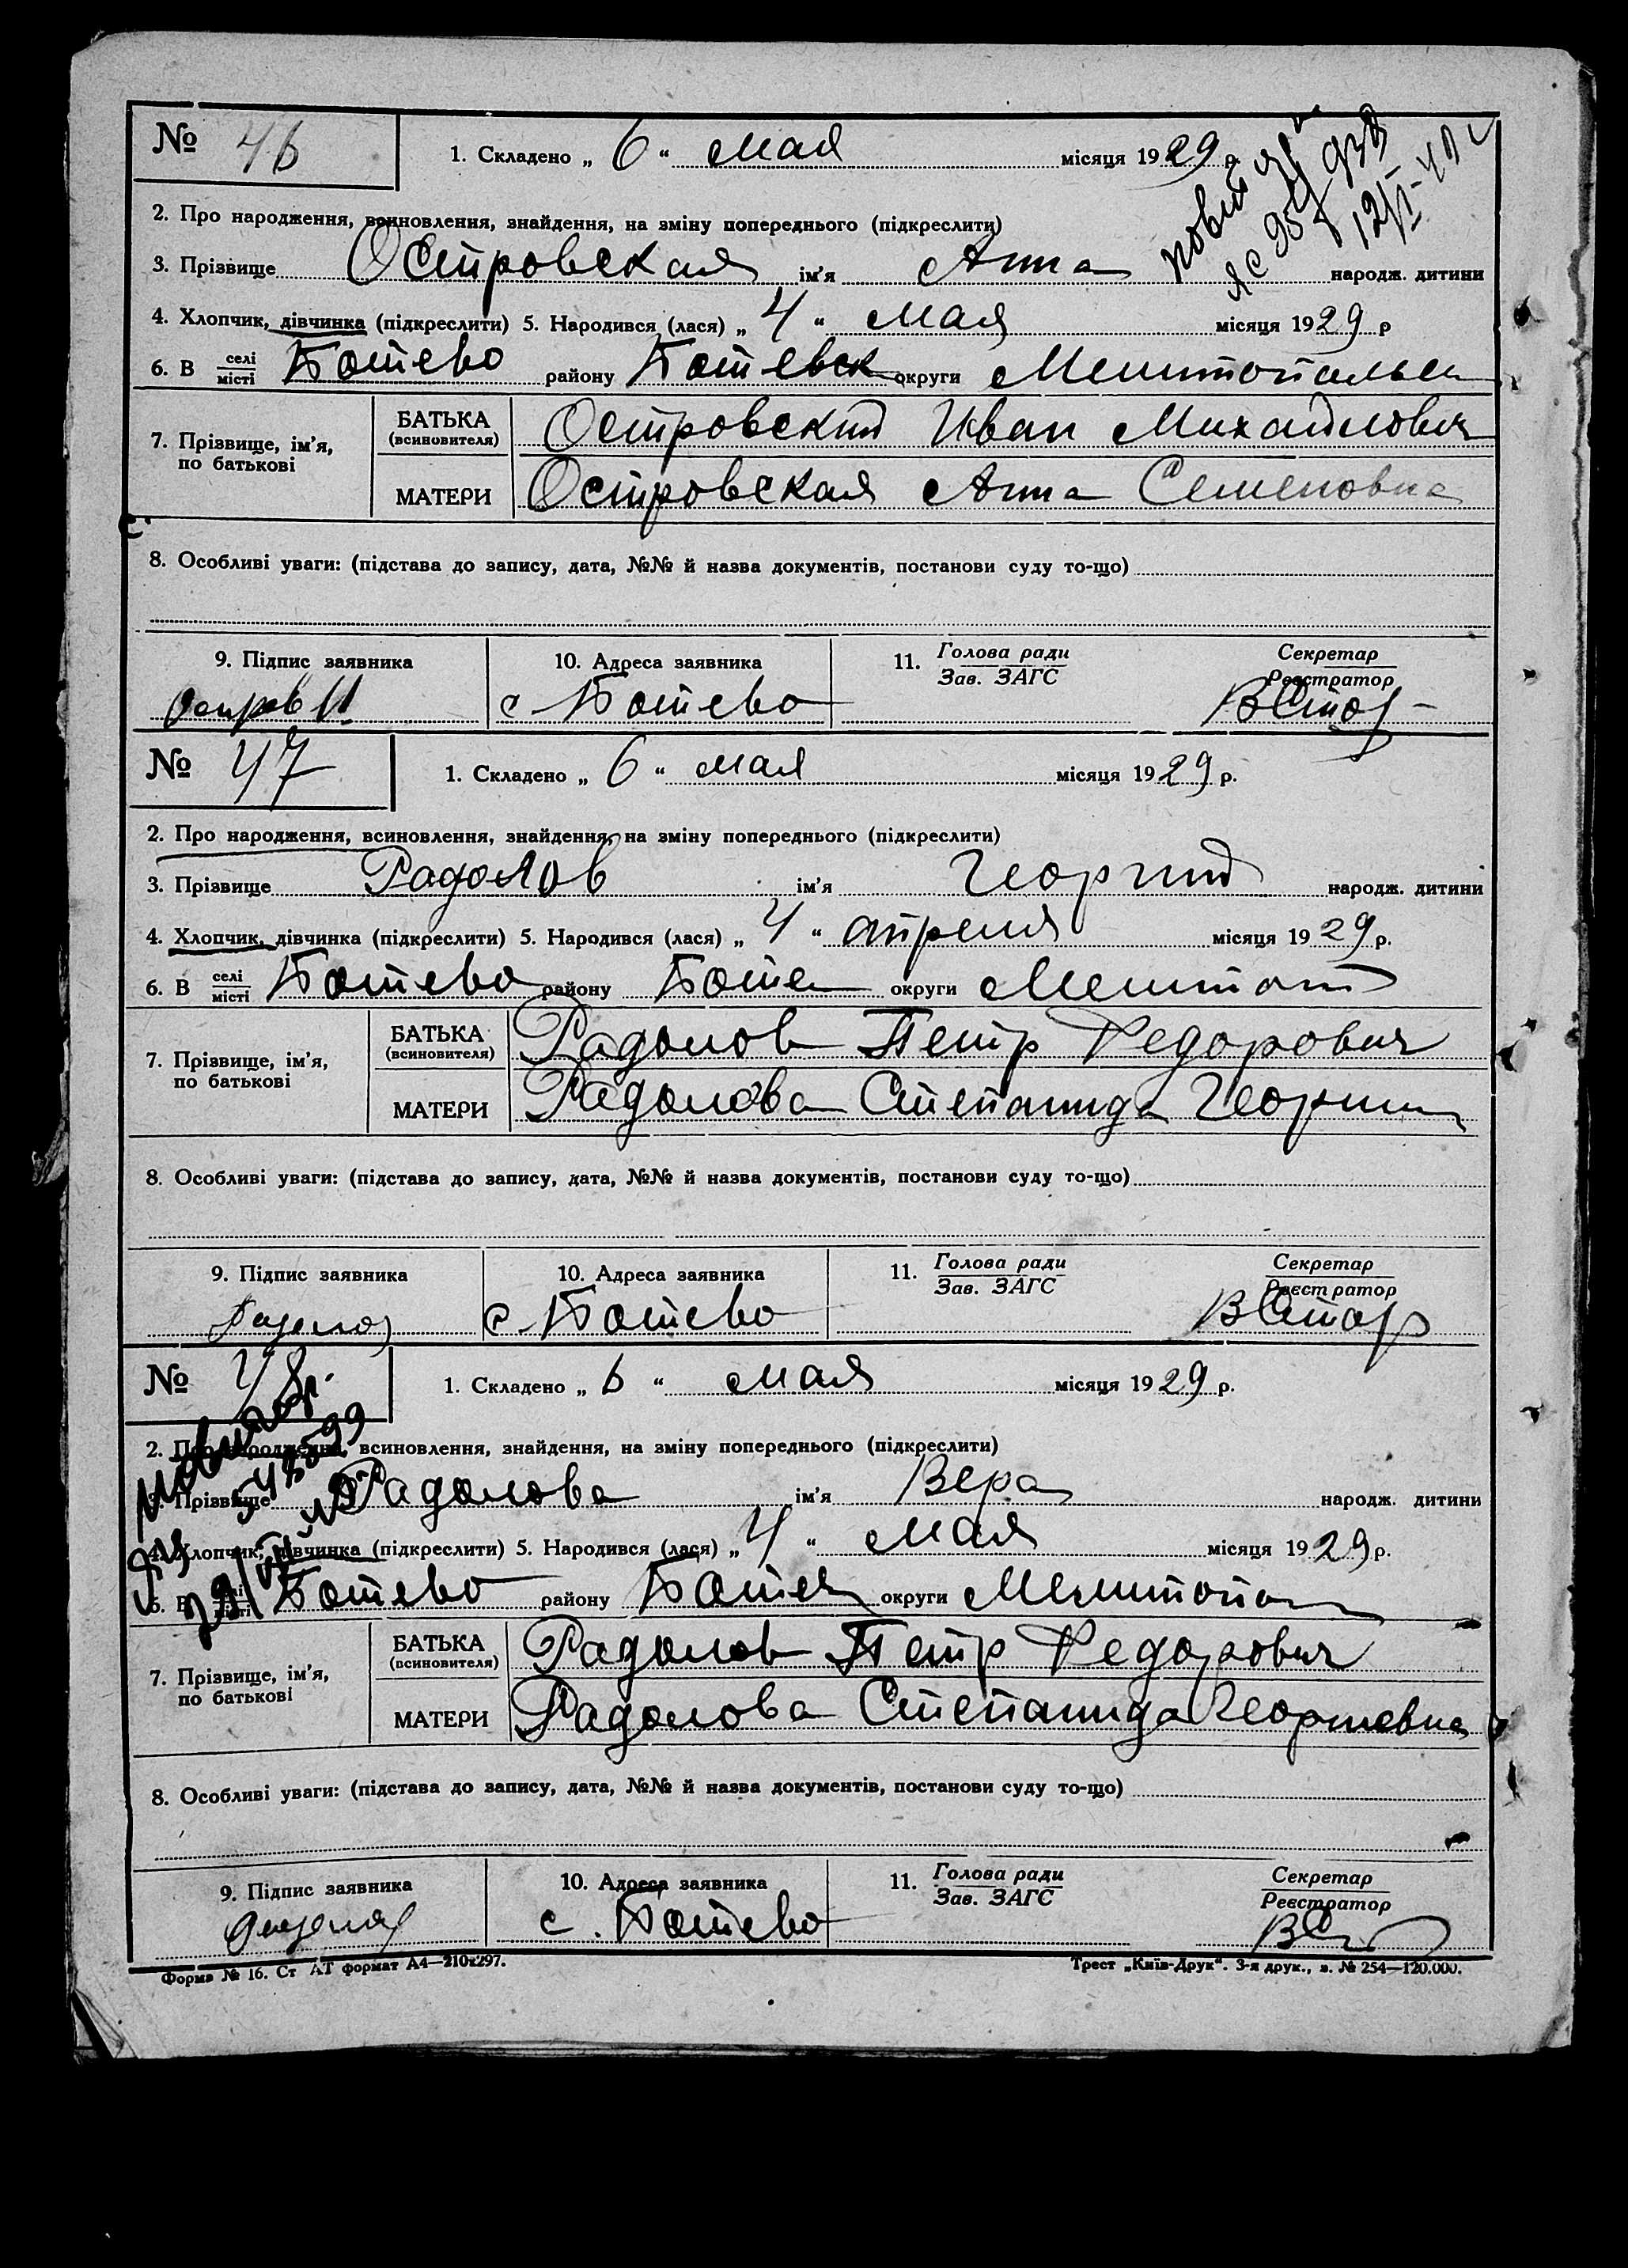 № 46 1. Складено „ 6 “ мая місяця 1929 р.
2. Про народження, всиновлення, знайдення, на зміну попереднього (підкреслити)
3. Прізвище Островская ім'я Анна народж. дитини
4. Хлопчик, дівчинка (підкреслити) 5. Народився (лася) „ 4 “ мая місяця 1929 р
6. В селі місті Ботево району Ботевск округи Мелитопольск
7. Прізвище, ім'я, по батькові
БАТЬКА (всиновителя) Островский Иван Михайлович
МАТЕРИ Островская Анна Семеновна
8. Особливі уваги: (підстава до запису, дата, №№ й назва документів, постанови суду то-що)
9. Підпис заявника 10. Адреса заявника 11. Голова ради Зав. ЗАГС Секретар Реєстратор
с Ботево
№ 47 1. Складено „ 6 “ мая місяця 1929 р.
2. Про народження, всиновлення, знайдення, на зміну попереднього (підкреслити)
3. Прізвище Радолов ім'я Георгий народж. дитини
4. Хлопчик, дівчинка (підкреслити) 5. Народився (лася) „ 4 “ апреля місяця 1929 р.
6. В селі місті Ботево району Ботев округи Мелитоп
7. Прізвище, ім'я, по батькові
БАТЬКА (всиновителя) Радолов Петр Федорович
МАТЕРИ Радолова Степанида Георги
8. Особливі уваги: (підстава до запису, дата, №№ й назва документів, постанови суду то-що)
9. Підпис заявника 10. Адреса заявника 11. Голова ради Зав. ЗАГС Секретар Реєстратор
Радолов с. Ботево
№ 48 1. Складено „ 6 “ мая місяця 1929 р.
2. Про народження, всиновлення, знайдення, на зміну попереднього (підкреслити)
3. Прізвище Радолова ім'я Вера народж. дитини
4. Хлопчик, дівчинка (підкреслити) 5. Народився (лася) „ 4 “ мая місяця 1929 р.
6. В селі місті Ботево району Ботев округи Мелитопол
7. Прізвище, ім'я, по батькові
БАТЬКА (всиновителя) Радолов Петр Федорович
МАТЕРИ Радолова Степанида Георгиевна
8. Особливі уваги: (підстава до запису, дата, №№ й назва документів, постанови суду то-що)
9. Підпис заявника 10. Адреса заявника 11. Голова ради Зав. ЗАГС Секретар Реєстратор
с. Ботево
Форма № 16. Ст АТ формат А4—210х297. Трест „Київ-Друк“. 3-я друк., з. № 254—120.000.